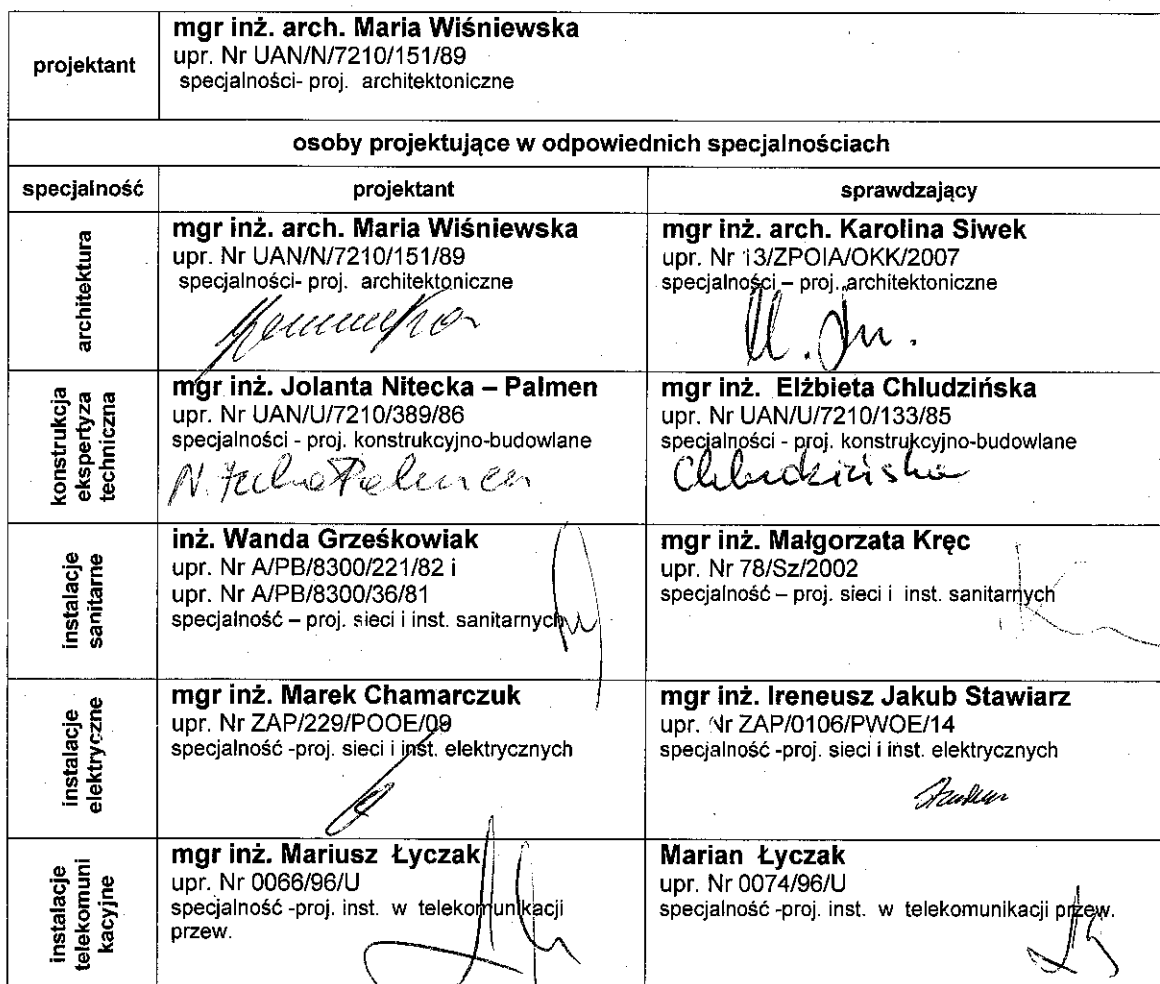 projektant
mgr inż. arch. Maria Wiśniewska
upr. Nr UAN/N/7210/151/89
specjalności- proj. architektoniczne
osoby projektujące w odpowiednich specjalnościach
specjalność
projektant
sprawdzający
architektura
mgr inż. arch. Maria Wiśniewska
upr. Nr UAN/N/7210/151/89
specjalności- proj. architektoniczne
mgr inż. arch. Karolina Siwek
upr. Nr 13/ZPOIA/OKK/2007
specjalności – proj. architektoniczne
konstrukcja
ekspertyza
techniczna
mgr inż. Jolanta Nitecka – Palmen
upr. Nr UAN/U/7210/389/86
specjalności - proj. konstrukcyjno-budowlane
mgr inż. Elżbieta Chludzińska
upr. Nr UAN/U/7210/133/85
specjalności - proj. konstrukcyjno-budowlane
Chludzińska
instalacje
sanitarne
inż. Wanda Grześkowiak
upr. Nr A/PB/8300/221/82 i
upr. Nr A/PB/8300/36/81
specjalność – proj. sieci i inst. sanitarnych
mgr inż. Małgorzata Kręc
upr. Nr 78/Sz/2002
specjalność – proj. sieci i inst. sanitarnych
instalacje
elektryczne
mgr inż. Marek Chamarczuk
upr. Nr ZAP/229/POOE/09
specjalność -proj. sieci i inst. elektrycznych
mgr inż. Ireneusz Jakub Stawiarz
upr. Nr ZAP/0106/PWOE/14
specjalność -proj. sieci i inst. elektrycznych
instalacje
telekomuni
kacyjne
mgr inż. Mariusz Łyczak
upr. Nr 0066/96/U
specjalność -proj. inst. w telekomunikacji
przew.
Marian Łyczak
upr. Nr 0074/96/U
specjalność -proj. inst. w telekomunikacji przew.